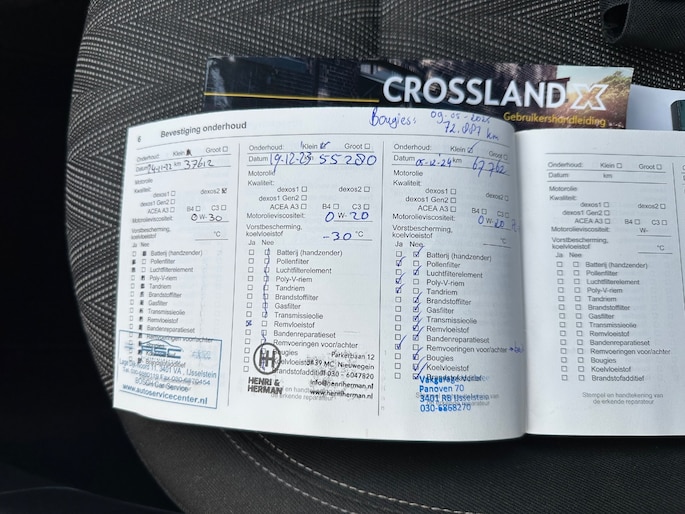 CROSSLAND X
Gebruikershandleiding
6 Bevestiging onderhoud
Bougies: 09-05-2025
72.887 km
Onderhoud: Klein Groot
Datum km 37612
Motorolie
Kwaliteit:
dexos1 dexos2
dexos1 Gen2
ACEA A3 B4 C3
Motorolieviscositeit: 0 W-30
Vorstbescherming,
koelvloeistof °C
Ja Nee
Batterij (handzender)
Pollenfilter
Luchtfilterelement
Poly-V-riem
Tandriem
Brandstoffilter
Gasfilter
Transmissieolie
Remvloeistof
Bandenreparatieset
Remvoeringen voor/achter
3401 VA, IJsselstein
www.autoservicecenter.nl
Onderhoud: Klein Groot
Datum 19-12-23 km 55280
Motorolie
Kwaliteit:
dexos1 dexos2
dexos1 Gen2
ACEA A3 B4 C3
Motorolieviscositeit: 0 W-20
Vorstbescherming,
koelvloeistof -30 °C
Ja Nee
Batterij (handzender)
Pollenfilter
Luchtfilterelement
Poly-V-riem
Tandriem
Brandstoffilter
Gasfilter
Transmissieolie
Remvloeistof
Bandenreparatieset
Remvoeringen voor/achter
Bougies
Koelvloeistof
Brandstofadditief
HENRI &
HERMAN
Parkerbaan 12
3439 MC Nieuwegein
030 - 6047820
info@henriherman.nl
www.henriherman.nl
Onderhoud: Klein Groot
Datum 05-12-24 km 67762
Motorolie
Kwaliteit:
dexos1 dexos2
dexos1 Gen2
ACEA A3 B4 C3
Motorolieviscositeit: 0 W-20
Vorstbescherming,
koelvloeistof °C
Ja Nee
Batterij (handzender)
Pollenfilter
Luchtfilterelement
Poly-V-riem
Tandriem
Brandstoffilter
Gasfilter
Transmissieolie
Remvloeistof
Bandenreparatieset
Remvoeringen voor/achter
Bougies
Koelvloeistof
Panoven 70
3401 RB IJsselstein
030-6868270
Onderhoud: Klein Groot
Datum km
Motorolie
Kwaliteit:
dexos1 dexos2
dexos1 Gen2
ACEA A3 B4 C3
Motorolieviscositeit: W-
Vorstbescherming,
koelvloeistof °C
Ja Nee
Batterij (handzender)
Pollenfilter
Luchtfilterelement
Poly-V-riem
Tandriem
Brandstoffilter
Gasfilter
Transmissieolie
Remvloeistof
Bandenreparatieset
Remvoeringen voor/achter
Bougies
Koelvloeistof
Brandstofadditief
Stempel en handtekening van
de erkende reparateur